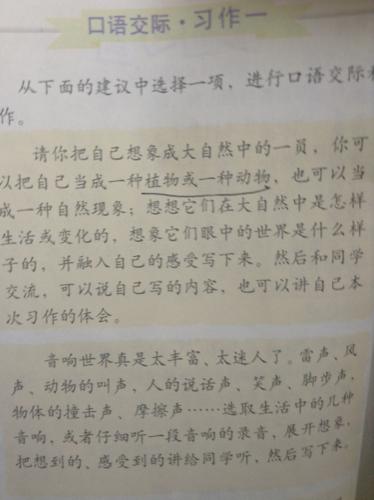 口语交际·习作一
从下面的建议中选择一项，进行口语交际
作。
请你把自己想象成大自然中的一员，你可
以把自己当成一种植物或一种动物，也可以当
成一种自然现象；想想它们在大自然中是怎样
生活或变化的，想象它们眼中的世界是什么样
子的，并融入自己的感受写下来。然后和同学
交流，可以说自己写的内容，也可以讲自己本
次习作的体会。
音响世界真是太丰富、太迷人了。雷声、风
声、动物的叫声，人的说话声、笑声、脚步声，
物体的撞击声、摩擦声……选取生活中的几种
音响，或者仔细听一段音响的录音，展开想象，
把想到的、感受到的讲给同学听，然后写下来。